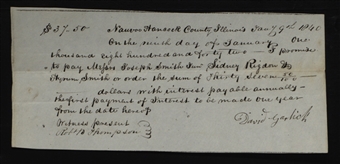 $37.50 Nauvoo Hancock County Illinois Jany 9th 1840
On the ninth day of January one
thousand eight hundred and forty two — I promise
to pay Messrs Joseph Smith Junr Sidney Rigdon &
Hyrum Smith or order the sum of Thirty Seven 50/100
dollars with interest payable annually —
the first payment of Interest to be made one year
from the date hereof
Witness present
Robt B Thompson
David Garlick